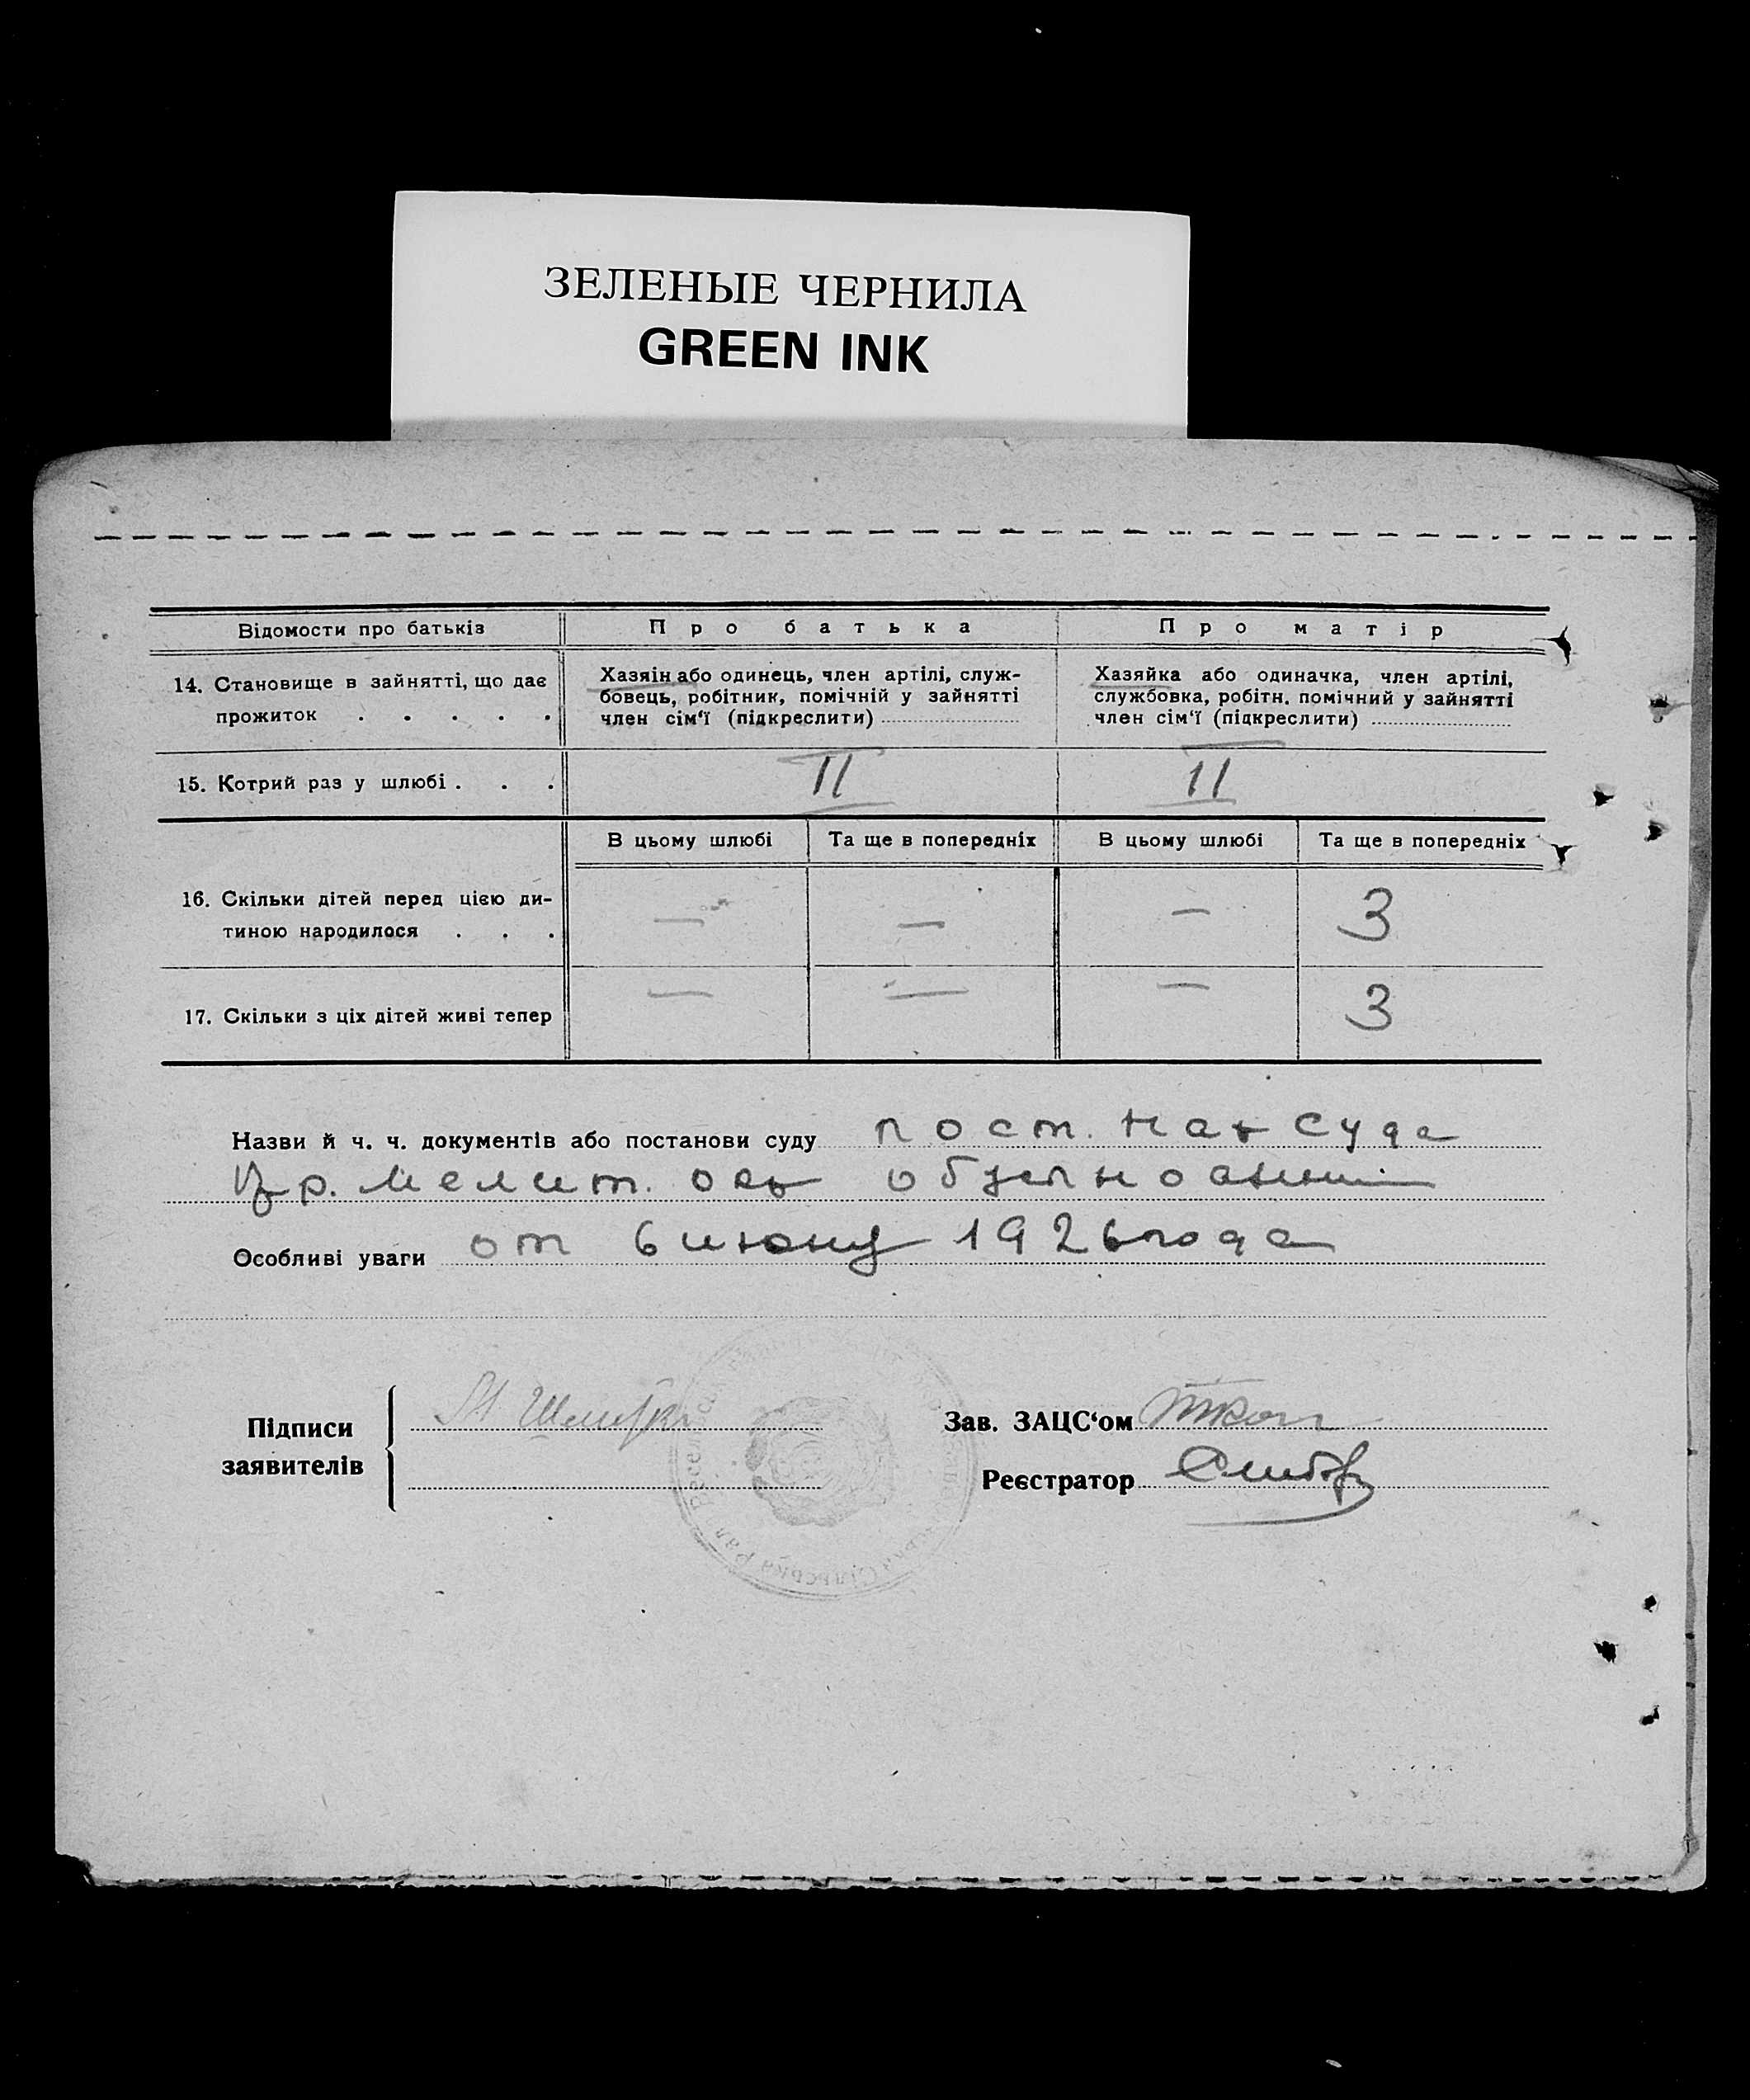 ЗЕЛЕНЫЕ ЧЕРНИЛА
GREEN INK
Відомости про батьків
Про батька
Про матір
14. Становище в зайнятті, що дає
прожиток . . . . .
Хазяїн або одинець, член артілі, служ-
бовець, робітник, помічній у зайнятті
член сім'ї (підкреслити)
Хазяйка або одиначка, член артілі,
службовка, робітн. помічний у зайнятті
член сім'ї (підкреслити)
15. Котрий раз у шлюбі . . .
II
II
В цьому шлюбі
Та ще в попередніх
В цьому шлюбі
Та ще в попередніх
16. Скільки дітей перед цією ди-
тиною народилося . . .
— — — 3
17. Скільки з ціх дітей живі тепер
— — — 3
Назви й ч. ч. документів або постанови суду пост. нар суда
Мелит. окр
Особливі уваги от 6 июня 1926 года
Підписи
заявителів
Зав. ЗАЦС'ом
Реєстратор